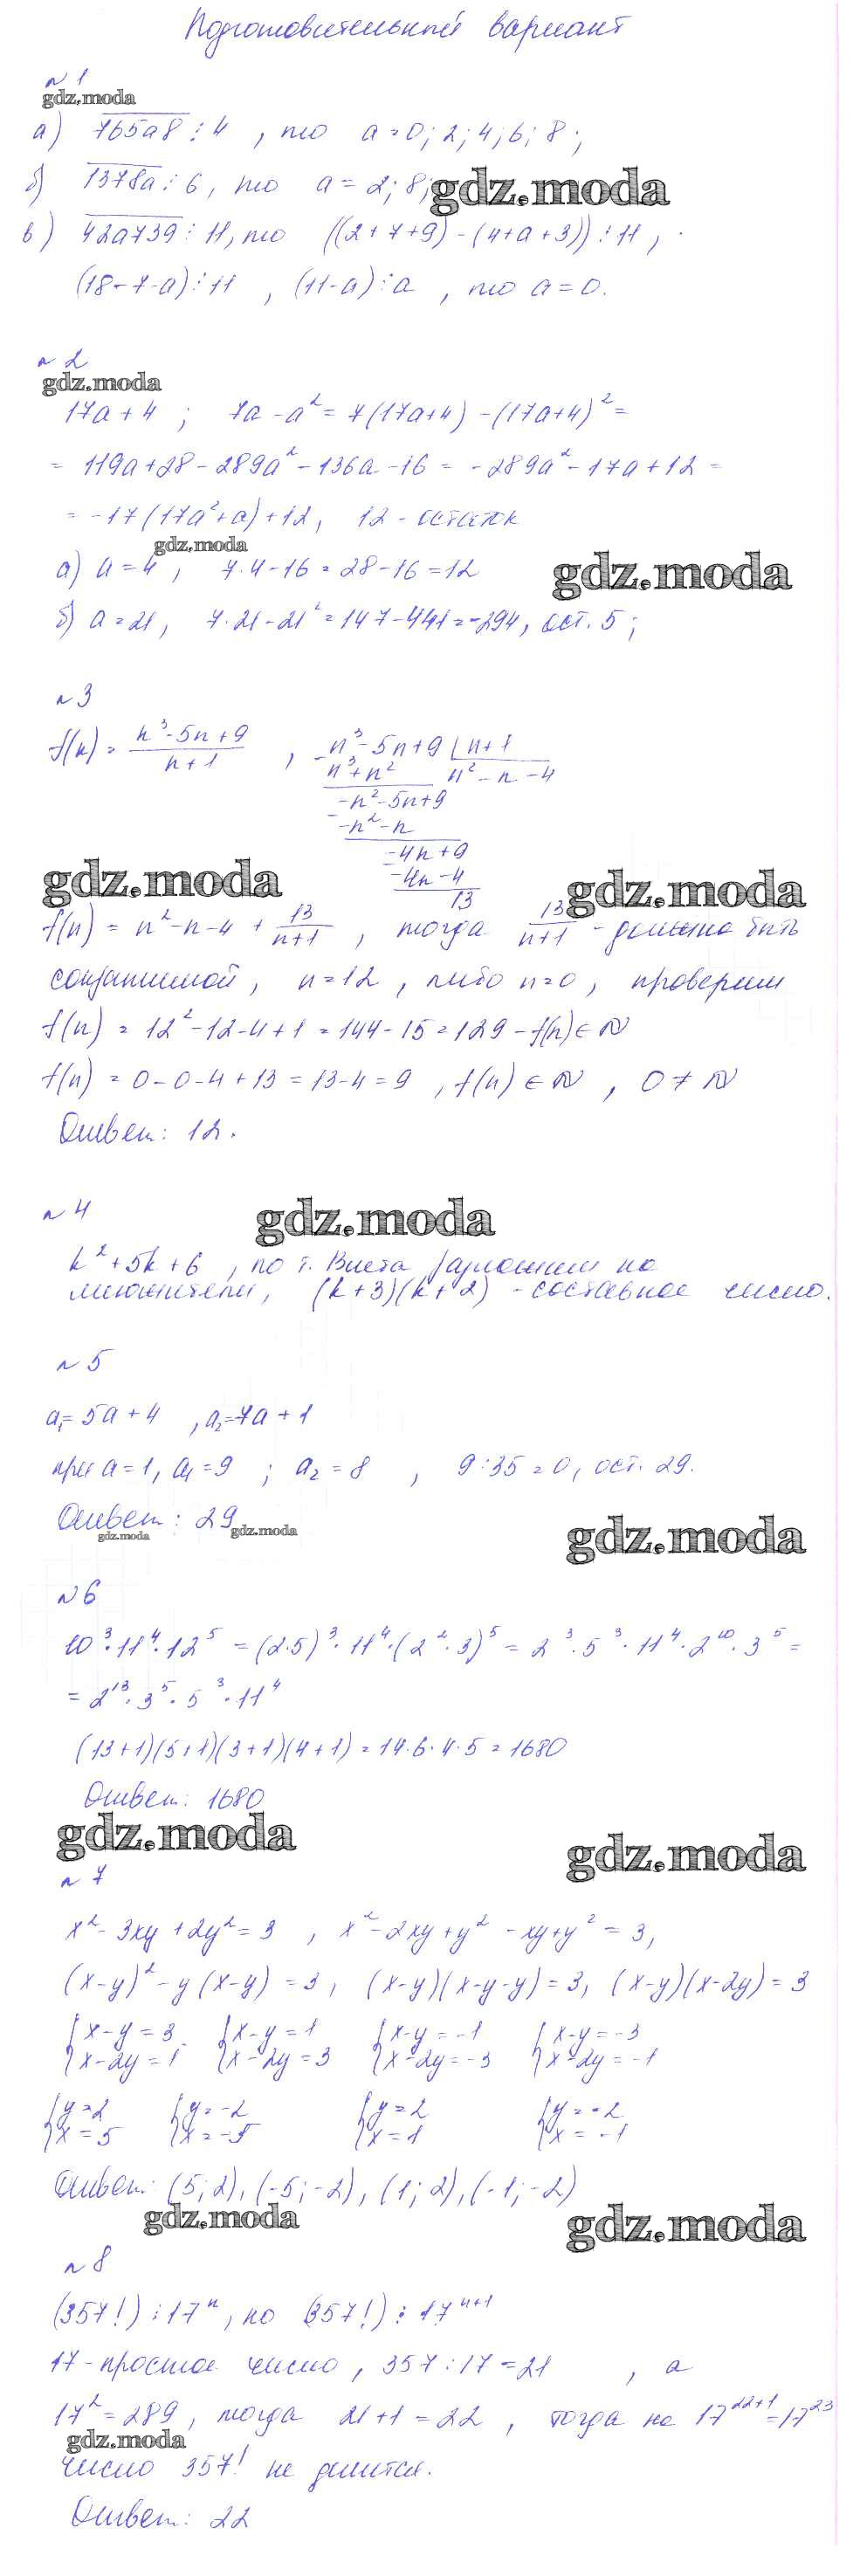 Подготовительный вариант
№ 1
gdz.moda
а) 765a8 ⋮ 4 , то a = 0; 2; 4; 6; 8 ;
б) 1378a ⋮ 6 , то a = 2; 8;
gdz.moda
в) 42a739 ⋮ 11, то ((2+7+9) - (4+a+3)) ⋮ 11 ,
(18-7-a) ⋮ 11 , (11-a) ⋮ a , то a = 0.
№ 2
gdz.moda
17a + 4 ; 7a - a² = 7(17a+4) - (17a+4)² =
= 119a + 28 - 289a² - 136a - 16 = -289a² - 17a + 12 =
= -17(17a² + a) + 12, 12 - остаток
gdz.moda
а) a = 4 , 7·4 - 16 = 28 - 16 = 12
gdz.moda
б) a = 21, 7·21 - 21² = 147 - 441 = -294, ост. 5 ;
№ 3
f(n) = n³ - 5n + 9 / n + 1 , n³ - 5n + 9 | n + 1
n³ + n² n² - n - 4
-n² - 5n + 9
-n² - n
-4n + 9
-4n - 4
13
gdz.moda
gdz.moda
f(n) = n² - n - 4 + 13/n+1 , тогда 13/n+1 - должно быть
сократимой, n = 12 , либо n = 0 , проверим
f(n) = 12² - 12 - 4 + 1 = 144 - 15 = 129 - f(n) ∈ N
f(n) = 0 - 0 - 4 + 13 = 13 - 4 = 9 , f(n) ∈ N , 0 ≠ N
Ответ: 12.
№ 4
gdz.moda
k² + 5k + 6 , по т. Виета разложим на
множители, (k+3)(k+2) - составное число.
№ 5
a₁ = 5a + 4 , a₂ = 7a + 1
при a = 1, a₁ = 9 ; a₂ = 8 , 9 : 35 = 0, ост. 29.
Ответ: 29
gdz.moda
gdz.moda
gdz.moda
№ 6
10³·11⁴·12⁵ = (2·5)³·11⁴·(2²·3)⁵ = 2³·5³·11⁴·2¹⁰·3⁵ =
= 2¹³·3⁵·5³·11⁴
(13+1)(5+1)(3+1)(4+1) = 14·6·4·5 = 1680
Ответ: 1680
gdz.moda
gdz.moda
№ 7
x² - 3xy + 2y² = 3 , x² - 2xy + y² - xy + y² = 3,
(x-y)² - y(x-y) = 3, (x-y)(x-y-y) = 3, (x-y)(x-2y) = 3
{x-y = 3 {x-y = 1 {x-y = -1 {x-y = -3
{x-2y = 1 {x-2y = 3 {x-2y = -3 {x-2y = -1
{y = 2 {y = -2 {y = 2 {y = -2
{x = 5 {x = -5 {x = 1 {x = -1
Ответ: (5; 2), (-5; -2), (1; 2), (-1; -2)
gdz.moda
gdz.moda
№ 8
(357!) ⋮ 17ⁿ, но (357!) ⋮ 17ⁿ⁺¹
17 - простое число, 357 : 17 = 21 , а
17² = 289, тогда 21 + 1 = 22 , тогда на 17²²⁺¹ = 17²³
gdz.moda
число 357! не делится.
Ответ: 22